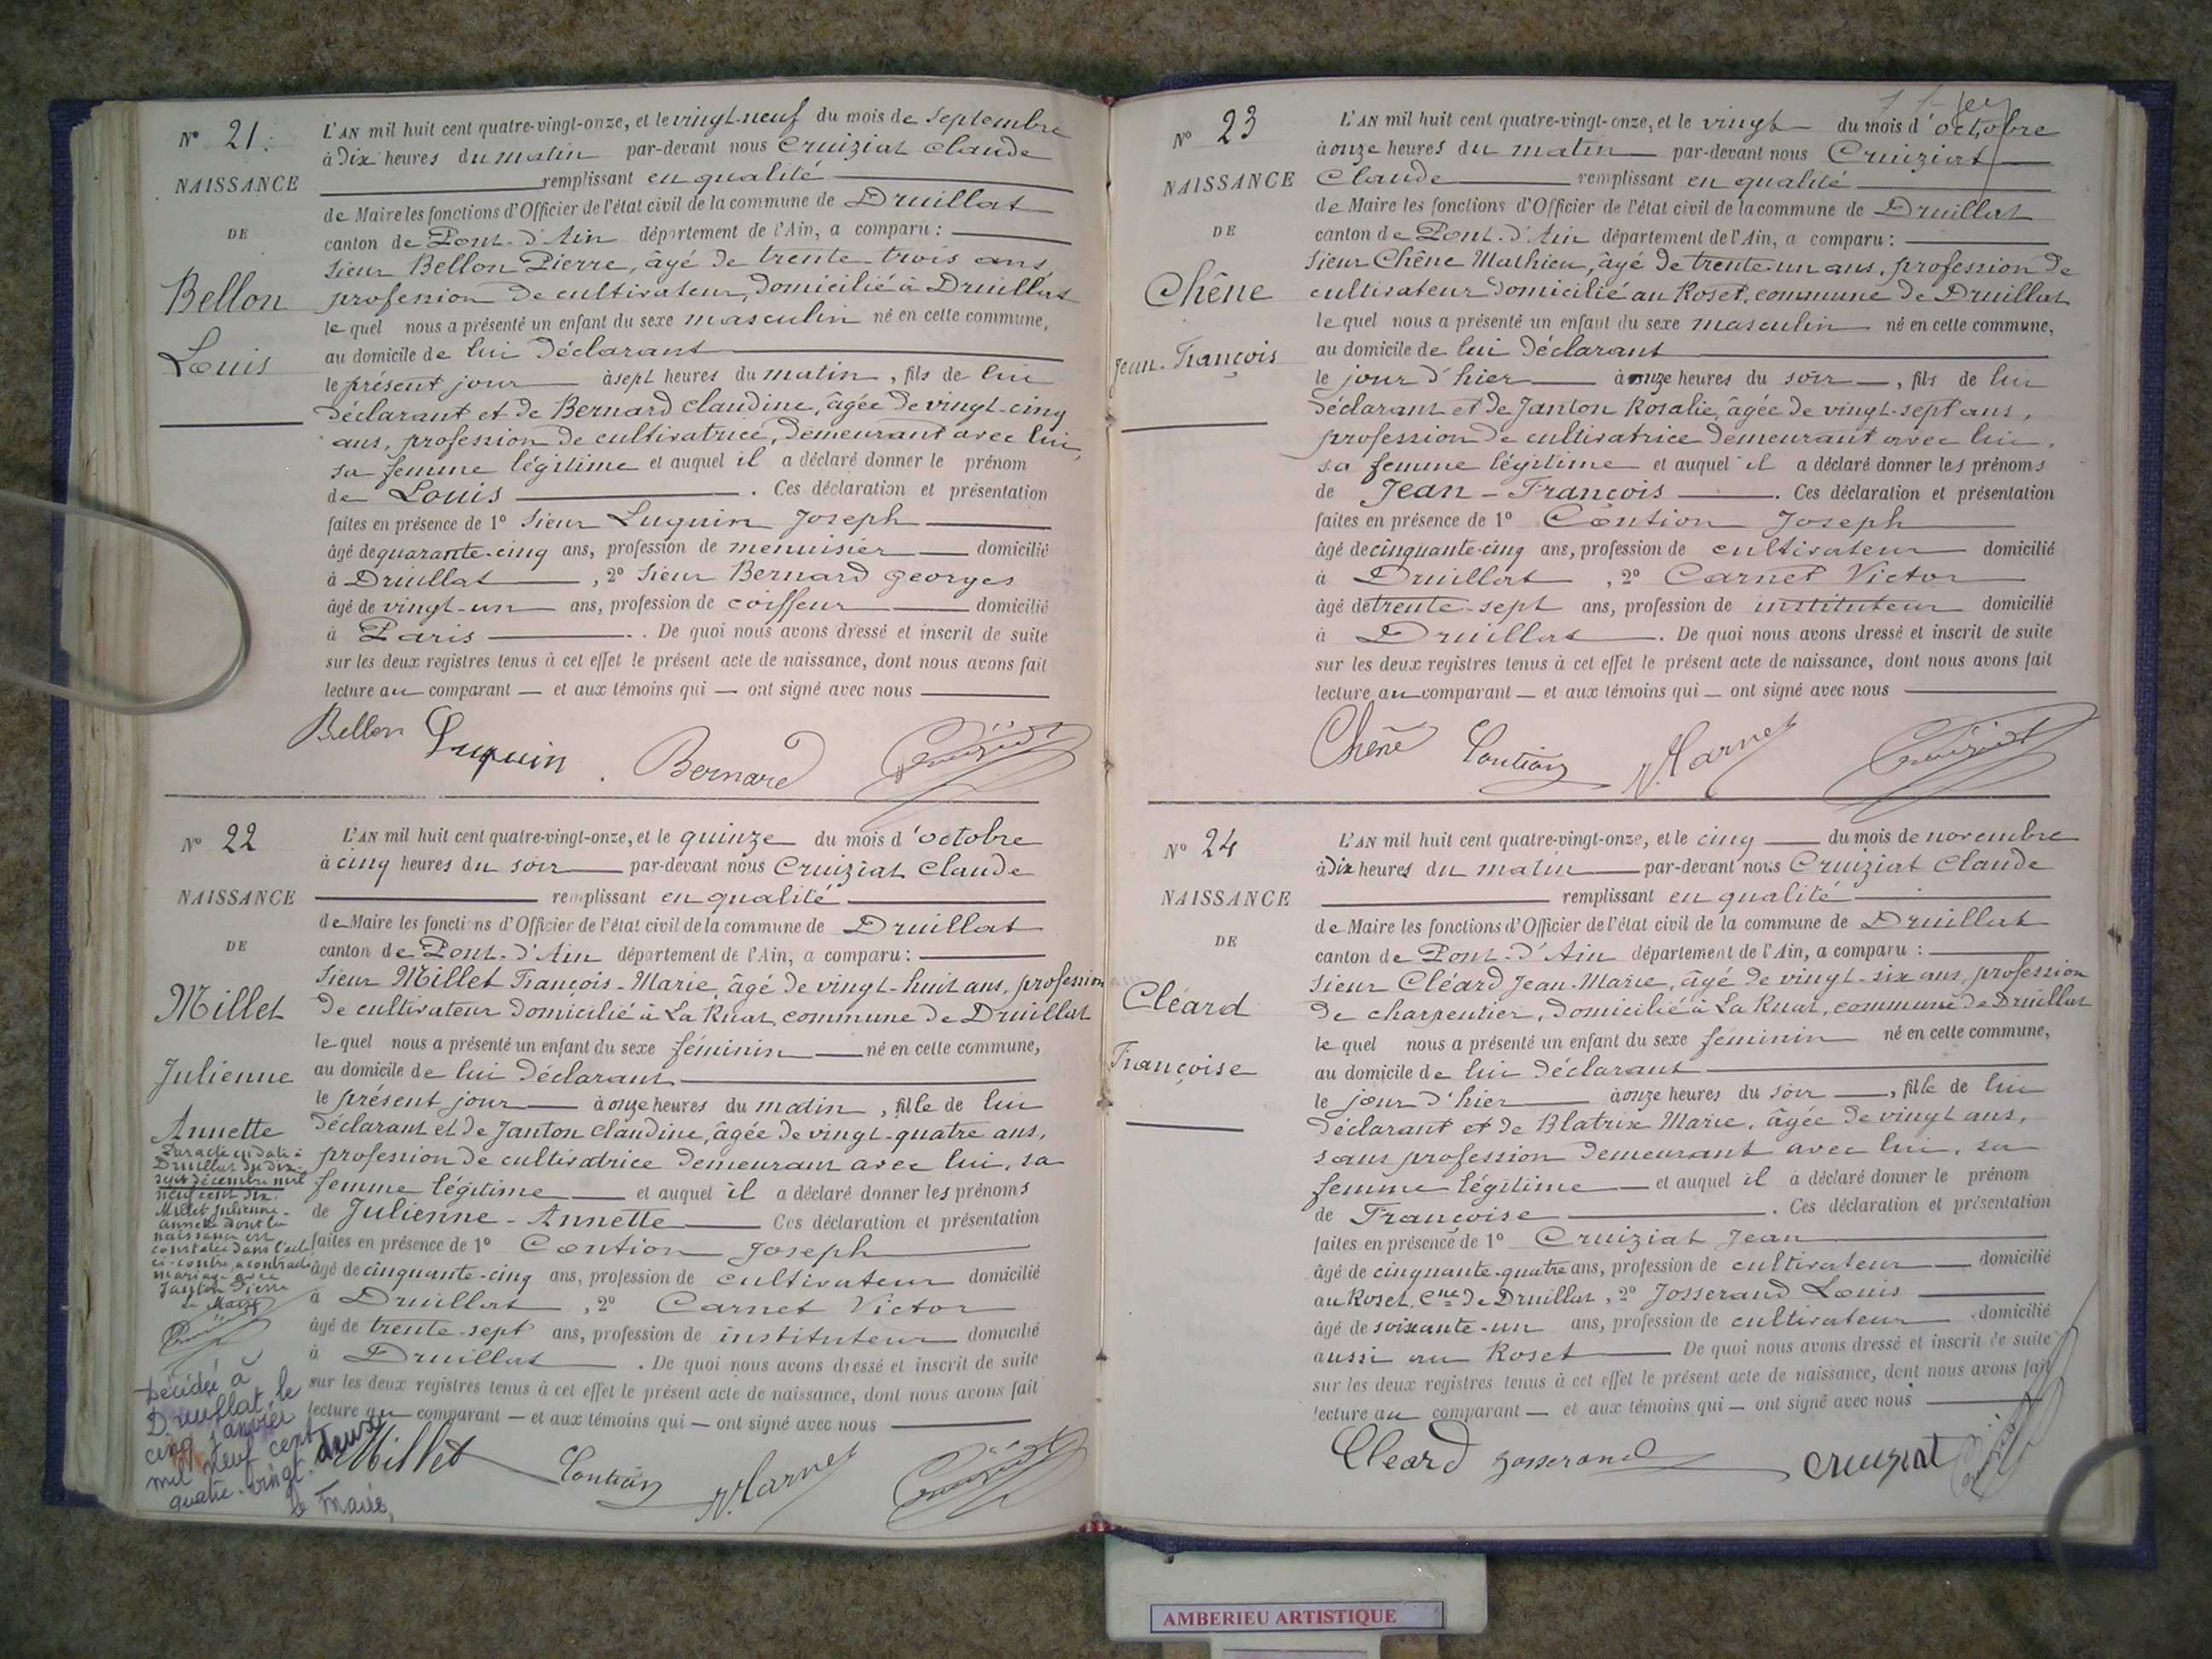 N° 21.
NAISSANCE
DE
Bellon
Louis
L'AN mil huit cent quatre-vingt-onze, et le vingt-neuf du mois de septembre
à dix heures du matin par-devant nous Cruiziat Claude
remplissant en qualité
de Maire les fonctions d'Officier de l'état civil de la commune de Druillat
canton de Pont-d'Ain département de l'Ain, a comparu :
sieur Bellon Pierre, âgé de trente-trois ans,
profession de cultivateur, domicilié à Druillat
lequel nous a présenté un enfant du sexe masculin né en cette commune,
au domicile de lui déclarant
le présent jour à sept heures du matin, fils de lui
déclarant et de Bernard Claudine, âgée de vingt-cinq
ans, profession de cultivatrice, demeurant avec lui,
sa femme légitime et auquel il a déclaré donner le prénom
de Louis . Ces déclaration et présentation
faites en présence de 1° sieur Luquin Joseph
âgé de quarante-cinq ans, profession de menuisier domicilié
à Druillat , 2° sieur Bernard Georges
âgé de vingt-un ans, profession de coiffeur domicilié
à Paris . De quoi nous avons dressé et inscrit de suite
sur les deux registres tenus à cet effet le présent acte de naissance, dont nous avons fait
lecture au comparant — et aux témoins qui — ont signé avec nous
Bellon Luquin Bernard Cruiziat
N° 22
NAISSANCE
DE
Millet
Julienne
Annette
Par acte en date à
Druillat du dix-
sept décembre mil
neuf cent dix.
Millet Julienne-
Annette dont la
naissance est
constatée dans l'acte
ci-contre, a contracté
mariage avec
Janton Pierre
Le Maire
Cruiziat
Décédée à
Druillat le
cinq janvier
mil neuf cent
quatre-vingt-deux
Le Maire,
L'AN mil huit cent quatre-vingt-onze, et le quinze du mois d'octobre
à cinq heures du soir par-devant nous Cruiziat Claude
remplissant en qualité
de Maire les fonctions d'Officier de l'état civil de la commune de Druillat
canton de Pont-d'Ain département de l'Ain, a comparu :
sieur Millet François-Marie, âgé de vingt-huit ans, profession
de cultivateur domicilié à La Ruat, commune de Druillat
lequel nous a présenté un enfant du sexe féminin né en cette commune,
au domicile de lui déclarant
le présent jour à onze heures du matin, fille de lui
déclarant et de Janton Claudine, âgée de vingt-quatre ans,
profession de cultivatrice demeurant avec lui, sa
femme légitime et auquel il a déclaré donner les prénoms
de Julienne-Annette Ces déclaration et présentation
faites en présence de 1° Contion Joseph
âgé de cinquante-cinq ans, profession de cultivateur domicilié
à Druillat , 2° Carnet Victor
âgé de trente-sept ans, profession de instituteur domicilié
à Druillat . De quoi nous avons dressé et inscrit de suite
sur les deux registres tenus à cet effet le présent acte de naissance, dont nous avons fait
lecture au comparant — et aux témoins qui — ont signé avec nous
Millet Contion V. Carnet Cruiziat
N° 23
NAISSANCE
DE
Chêne
Jean-François
L'AN mil huit cent quatre-vingt-onze, et le vingt du mois d'octobre
à onze heures du matin par-devant nous Cruiziat
Claude remplissant en qualité
de Maire les fonctions d'Officier de l'état civil de la commune de Druillat
canton de Pont-d'Ain département de l'Ain, a comparu :
sieur Chêne Mathieu, âgé de trente-un ans, profession de
cultivateur domicilié au Roset, commune de Druillat
lequel nous a présenté un enfant du sexe masculin né en cette commune,
au domicile de lui déclarant
le jour d'hier à onze heures du soir, fils de lui
déclarant et de Janton Rosalie, âgée de vingt-sept ans,
profession de cultivatrice demeurant avec lui,
sa femme légitime et auquel il a déclaré donner les prénoms
de Jean-François . Ces déclaration et présentation
faites en présence de 1° Contion Joseph
âgé de cinquante-cinq ans, profession de cultivateur domicilié
à Druillat , 2° Carnet Victor
âgé de trente-sept ans, profession de instituteur domicilié
à Druillat . De quoi nous avons dressé et inscrit de suite
sur les deux registres tenus à cet effet le présent acte de naissance, dont nous avons fait
lecture au comparant — et aux témoins qui — ont signé avec nous
Chêne Contion V. Carnet Cruiziat
N° 24
NAISSANCE
DE
Cléard
Françoise
L'AN mil huit cent quatre-vingt-onze, et le cinq du mois de novembre
à dix heures du matin par-devant nous Cruiziat Claude
remplissant en qualité
de Maire les fonctions d'Officier de l'état civil de la commune de Druillat
canton de Pont-d'Ain département de l'Ain, a comparu :
sieur Cléard Jean-Marie, âgé de vingt-six ans, profession
de charpentier, domicilié à La Ruat, commune de Druillat
lequel nous a présenté un enfant du sexe féminin né en cette commune,
au domicile de lui déclarant
le jour d'hier à onze heures du soir, fille de lui
déclarant et de Blatrix Marie, âgée de vingt ans,
sans profession demeurant avec lui, sa
femme légitime et auquel il a déclaré donner le prénom
de Françoise . Ces déclaration et présentation
faites en présence de 1° Cruiziat Jean
âgé de cinquante-quatre ans, profession de cultivateur domicilié
au Roset, Cne de Druillat, 2° Josserand Louis
âgé de soixante-un ans, profession de cultivateur domicilié
aussi au Roset De quoi nous avons dressé et inscrit de suite
sur les deux registres tenus à cet effet le présent acte de naissance, dont nous avons fait
lecture au comparant — et aux témoins qui — ont signé avec nous
Cleard Josserand Cruiziat Cruiziat
AMBERIEU ARTISTIQUE